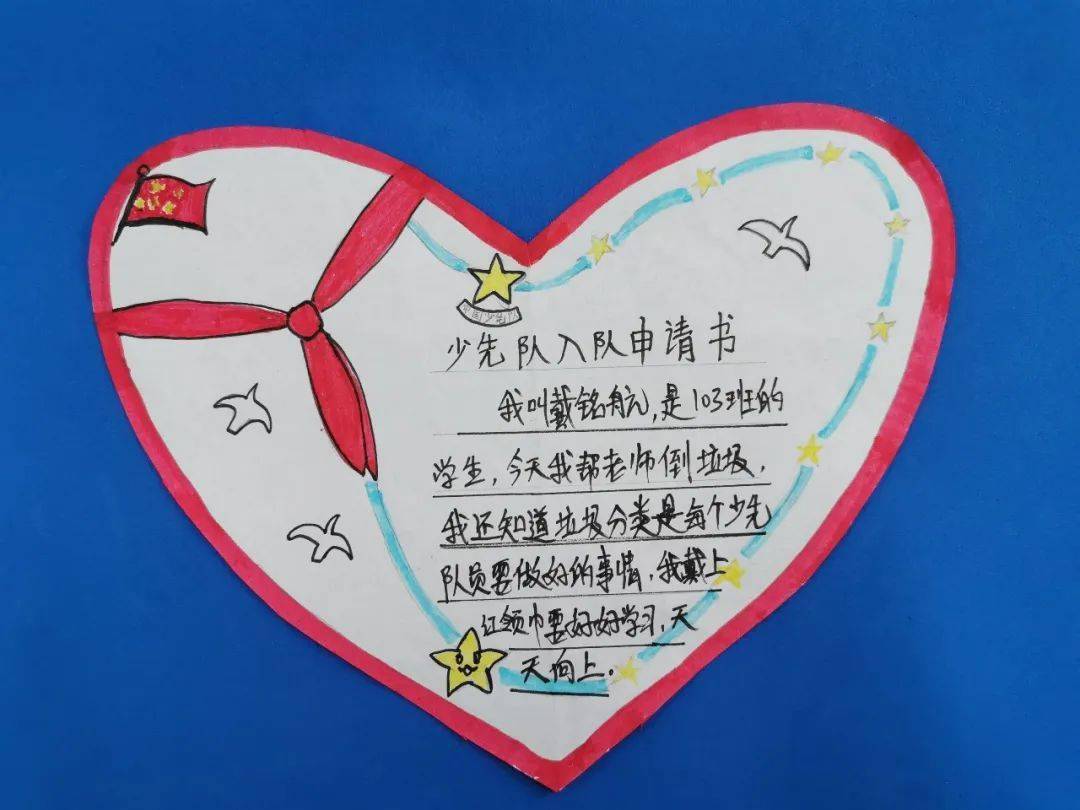 中国少先队
少先队入队申请书
我叫戴铭航,是103班的
学生,今天我帮老师倒垃圾,
我还知道垃圾分类是每个少先
队员要做好的事情,我戴上
红领巾要好好学习,天
天向上.